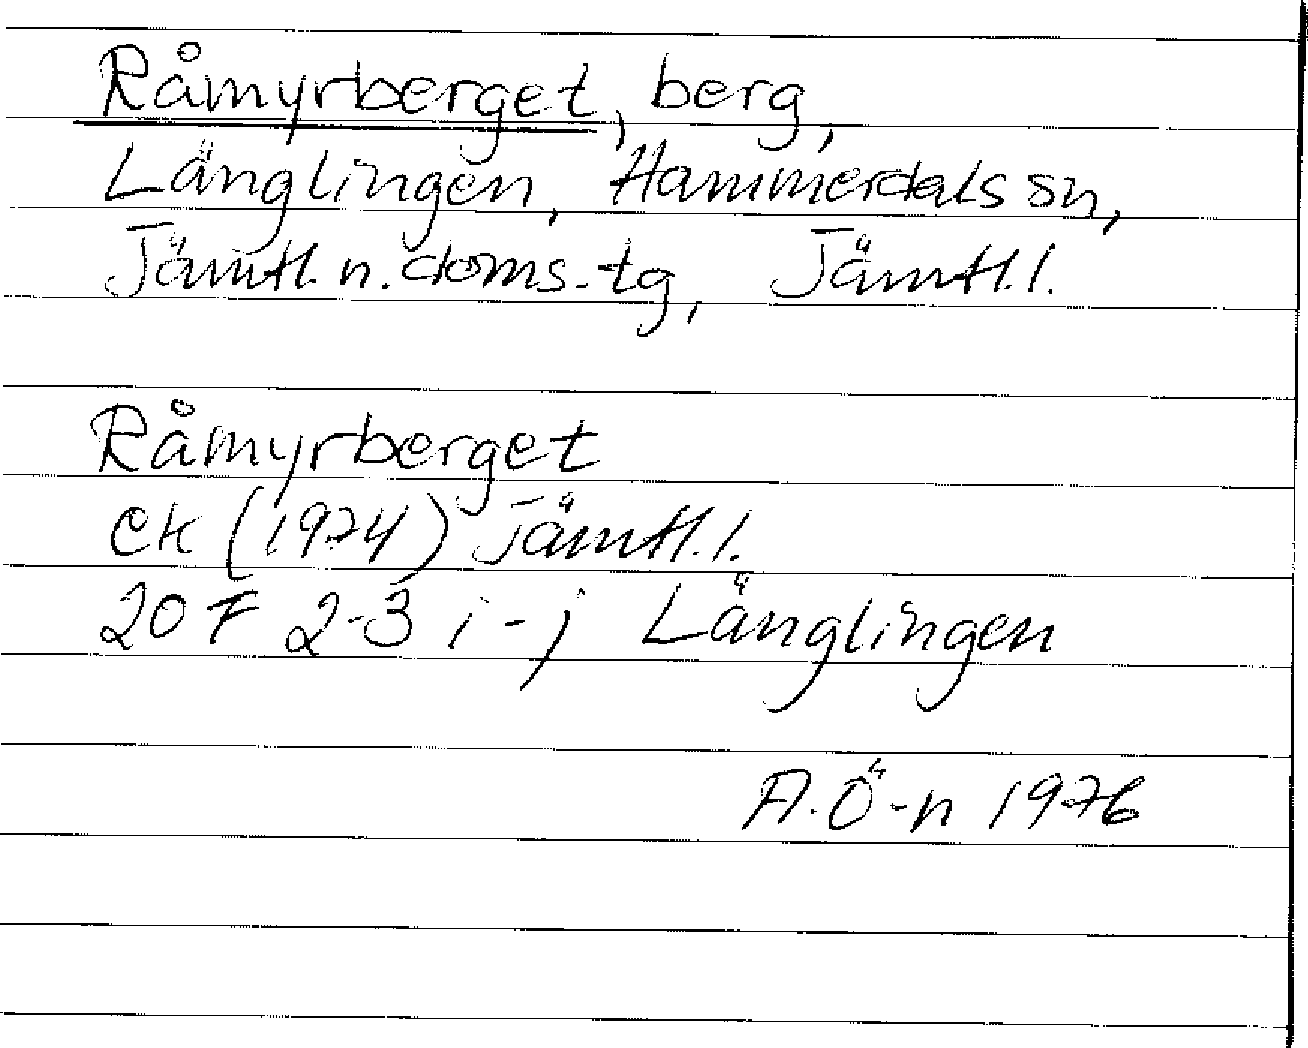 Råmyrberget, berg,
Länglingen, Hammerdals sn,
Jämtl. n. doms. tg, Jämtl. l.
Råmyrberget
EK (1974) Jämtl. l.
20 F 2-3 i-j Länglingen
A. Ö-n 1976